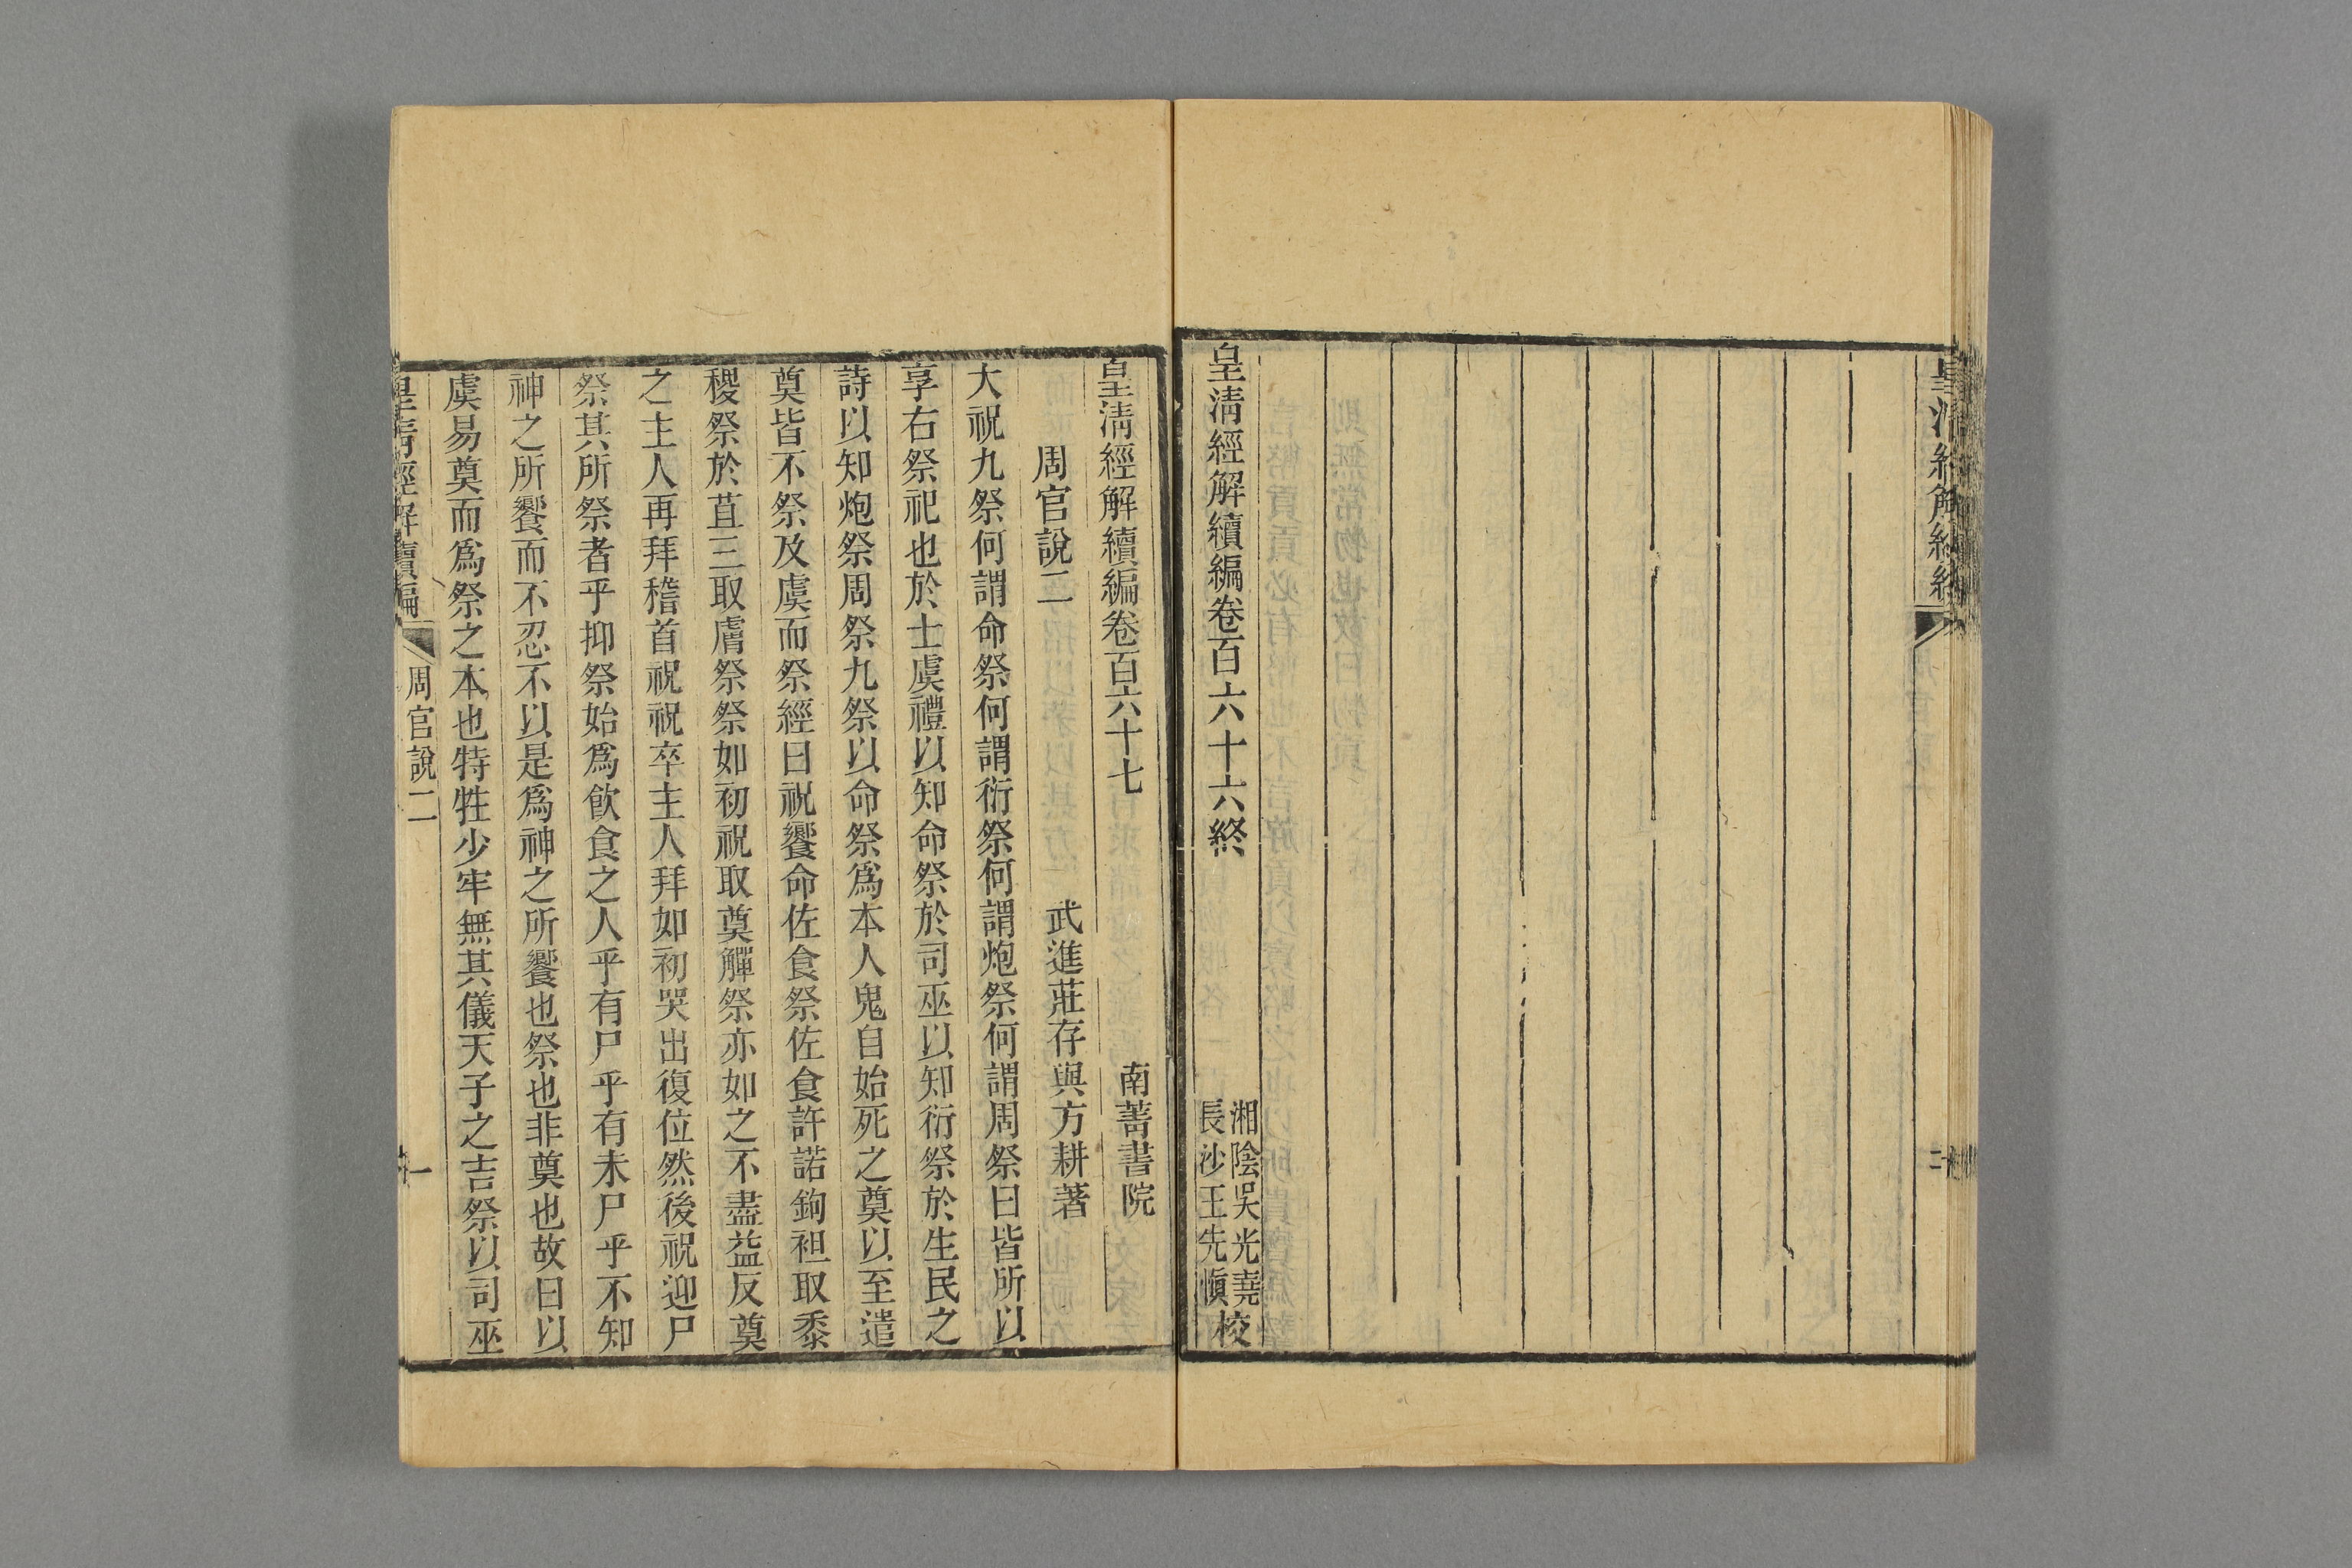 皇清經解續編卷百六十六終
湘陰吳光堯
長沙王先愼
校
皇清經解續編卷百六十七
南菁書院
周官說二
武進莊存與方耕著
大祝九祭何謂命祭何謂衍祭何謂炮祭何謂周祭曰皆所以
享右祭祀也於士虞禮以知命祭於司巫以知衍祭於生民之
詩以知炮祭周祭九祭以命祭爲本人鬼自始死之奠以至遣
奠皆不祭及虞而祭經曰祝饗命佐食祭佐食許諾鉤袒取黍
稷祭於苴三取膚祭祭如初祝取奠觶祭亦如之不盡益反奠
之主人再拜稽首祝祝卒主人拜如初哭出復位然後祝迎尸
祭其所祭者乎抑祭始爲飮食之人乎有尸乎有未尸乎不知
神之所饗而不忍不以是爲神之所饗也祭也非奠也故曰以
虞易奠而爲祭之本也特牲少牢無其儀天子之吉祭以司巫
皇清經解續編
周官說二
一